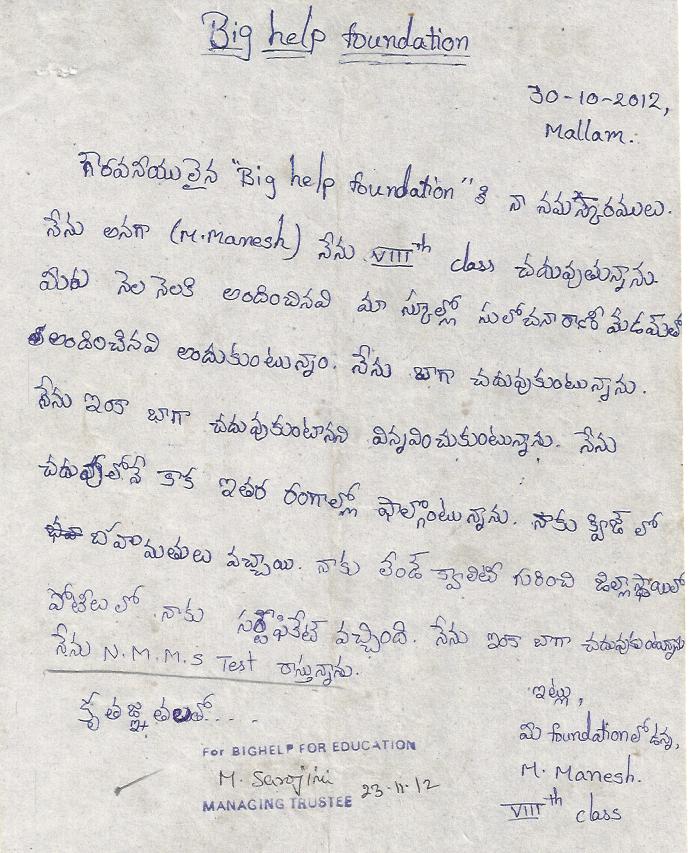 Big help foundation
30-10-2012,
Mallam.
గౌరవనీయులైన "Big help foundation" కి నా నమస్కారములు.
నేను అనగా (M.Manesh) నేను VIIIth class చదువుతున్నాను.
మీరు నెల నెలకి అందించినవి మా స్కూల్లో సులోచనా రాణి మేడమ్‌తో
అండించినవి అందుకుంటున్నాం. నేను బాగా చదువుకుంటున్నాను.
నేను ఇంకా బాగా చదువుకుంటానని విన్నవించుకుంటున్నాను. నేను
చదువులోనే కాక ఇతర రంగాల్లో ఫాల్గొంటున్నాను. నాకు క్విజ్ లో
బహుమతులు వచ్చాయి. నాకు లేండ్ క్వాలిటీ గురించి జిల్లాస్థాయిలో
పోటీలు లో నాకు సర్టిఫికేట్ వచ్చింది. నేను ఇంకా బాగా చదువుకుంటున్నాను
నేను N.M.M.S Test రాస్తున్నాను.
కృతజ్ఞతలతో....
ఇట్లు,
మీ foundation లోఉన్న,
M. Manesh.
VIIIth class
For BIGHELP FOR EDUCATION
M. Sarojini 23-11-12
MANAGING TRUSTEE